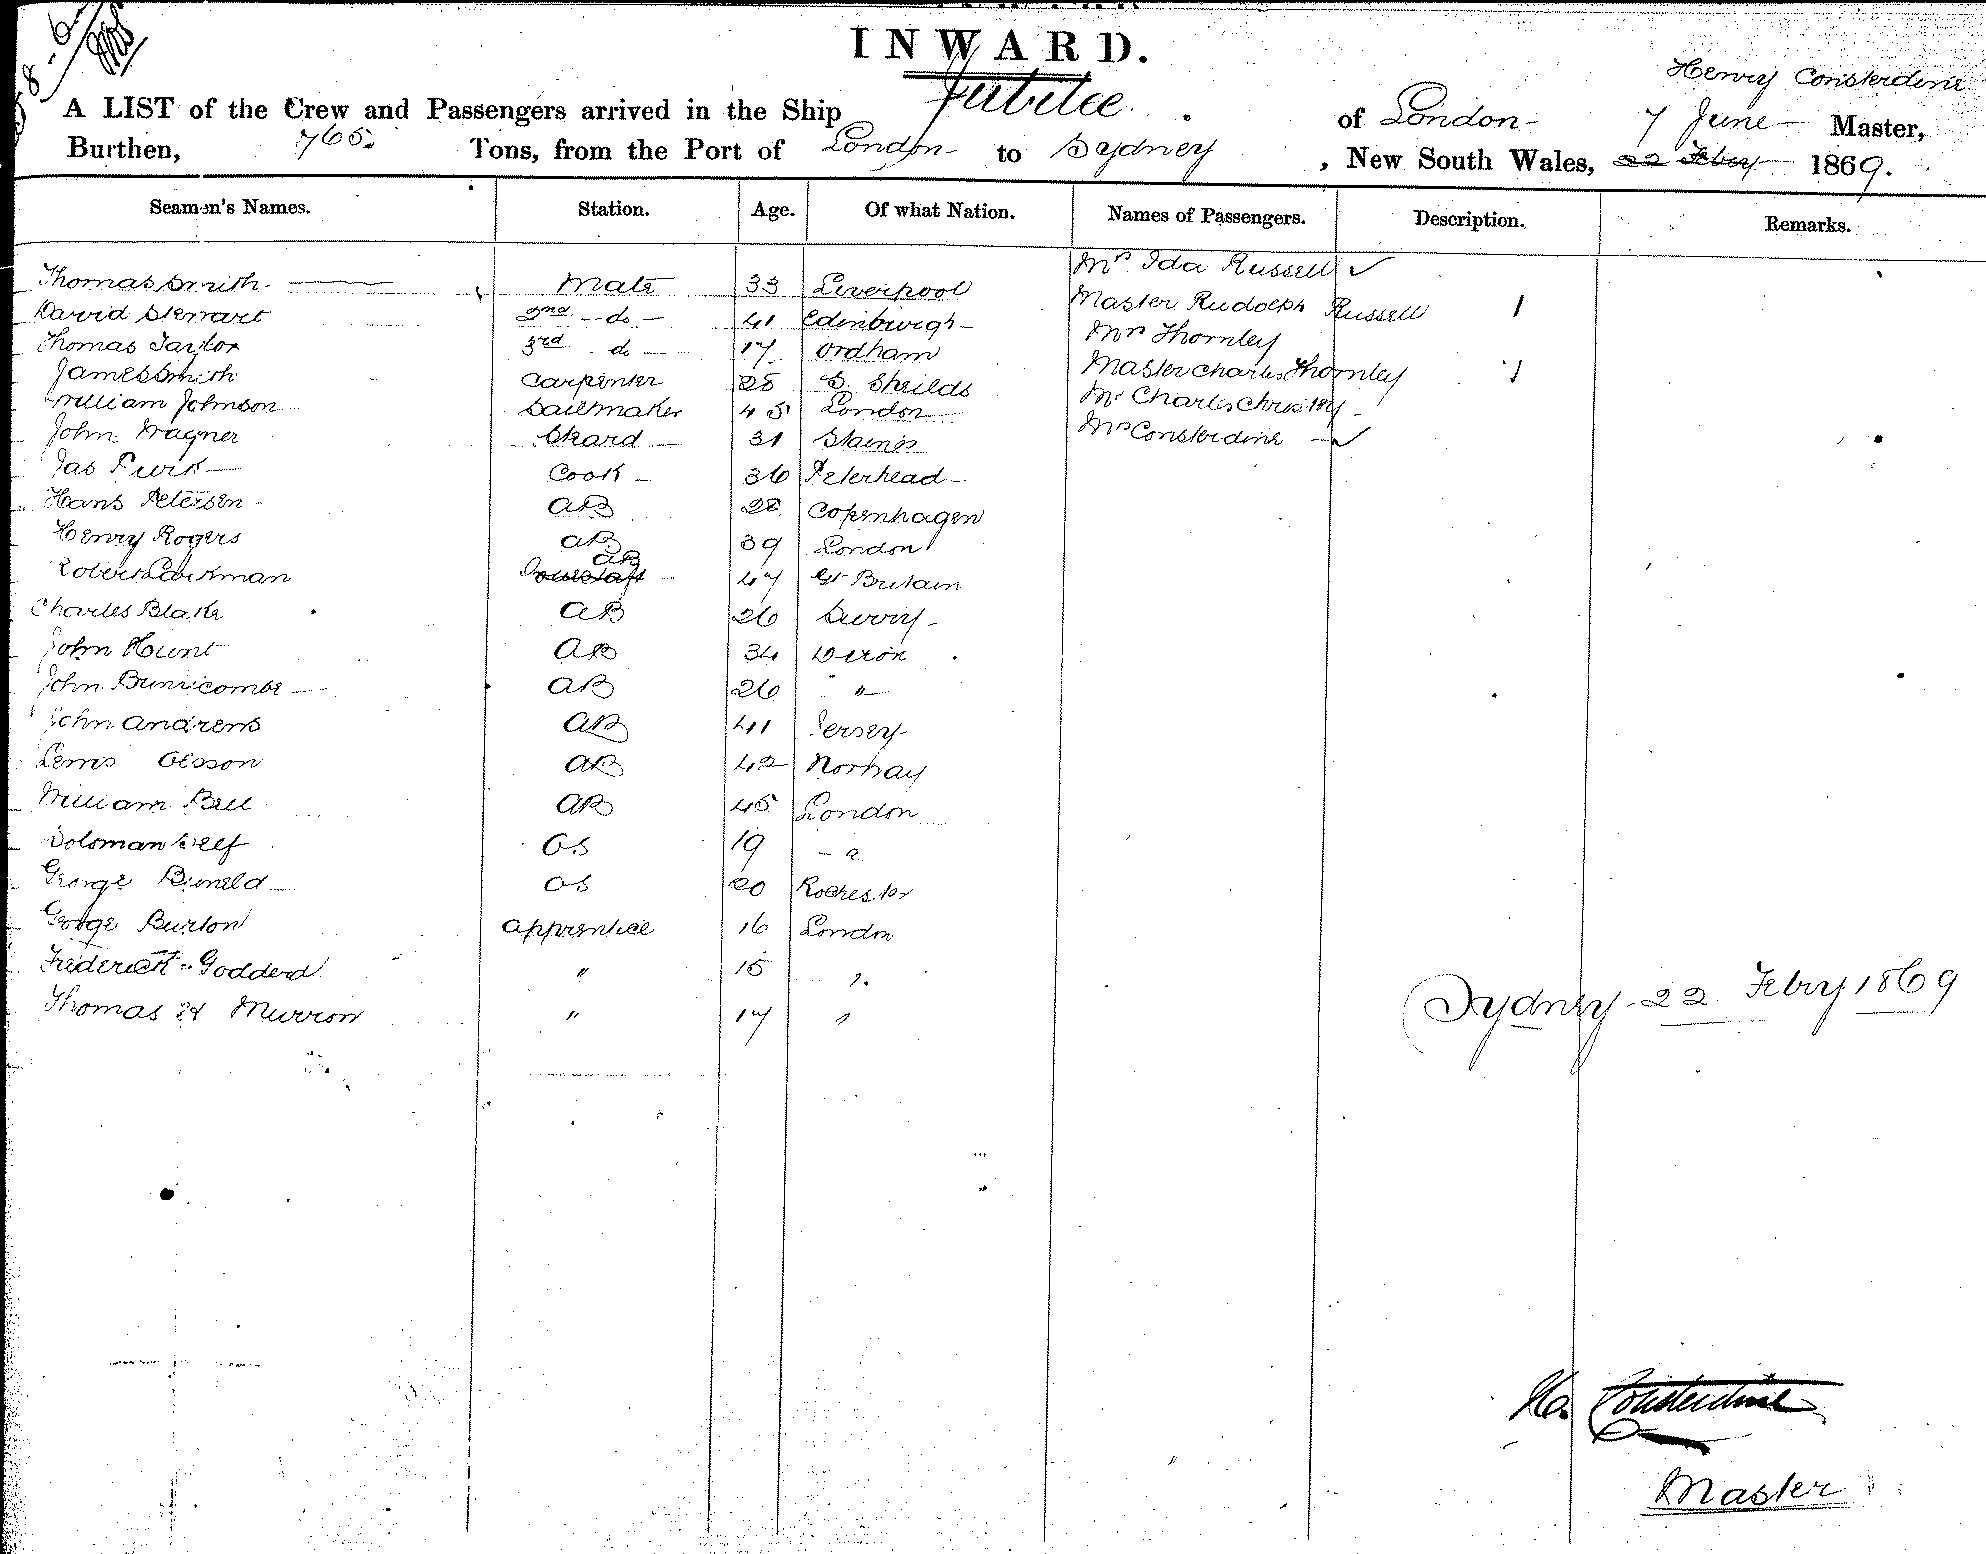 INWARD.
Henry Consterdine
A LIST of the Crew and Passengers arrived in the Ship Jubilee of London 7 June Master,
Burthen, 765 Tons, from the Port of London to Sydney, New South Wales, 22 Feby 1869.
Seamen's Names. Station. Age. Of what Nation. Names of Passengers. Description. Remarks.
Thomas Smith Mate 33 Liverpool Mrs Ida Russell
David Stewart 2nd do 41 Edinburgh Master Rudolph Russell 1
Thomas Taylor 3rd do 17 Oldham Mrs Thornley
James Smith Carpenter 28 S. Sheilds Master Charles Thornley 1
William Johnson Sailmaker 45 London Mr Charles Christey
John Wagner Stuard 31 Stains Mrs Consterdine
Jas Cook 36 Peterhead
Hans Petersen AB 28 Copenhagen
Henry Rogers AB 39 London
Robert AB 47 Gt Britain
Charles Blake AB 26 Surry
John Hunt AB 34 Devon
John Bunicombe AB 26 "
John Andrews AB 41 Jersey
Lewis Olsson AB 42 Norway
William Bell AB 45 London
Soloman Self OS 19
George OS 20 Rochester
George Burton Apprentice 16 London
Frederick Godderd " 15 "
Thomas " 17 "
Sydney 22 Feby 1869
H. Consterdine
Master